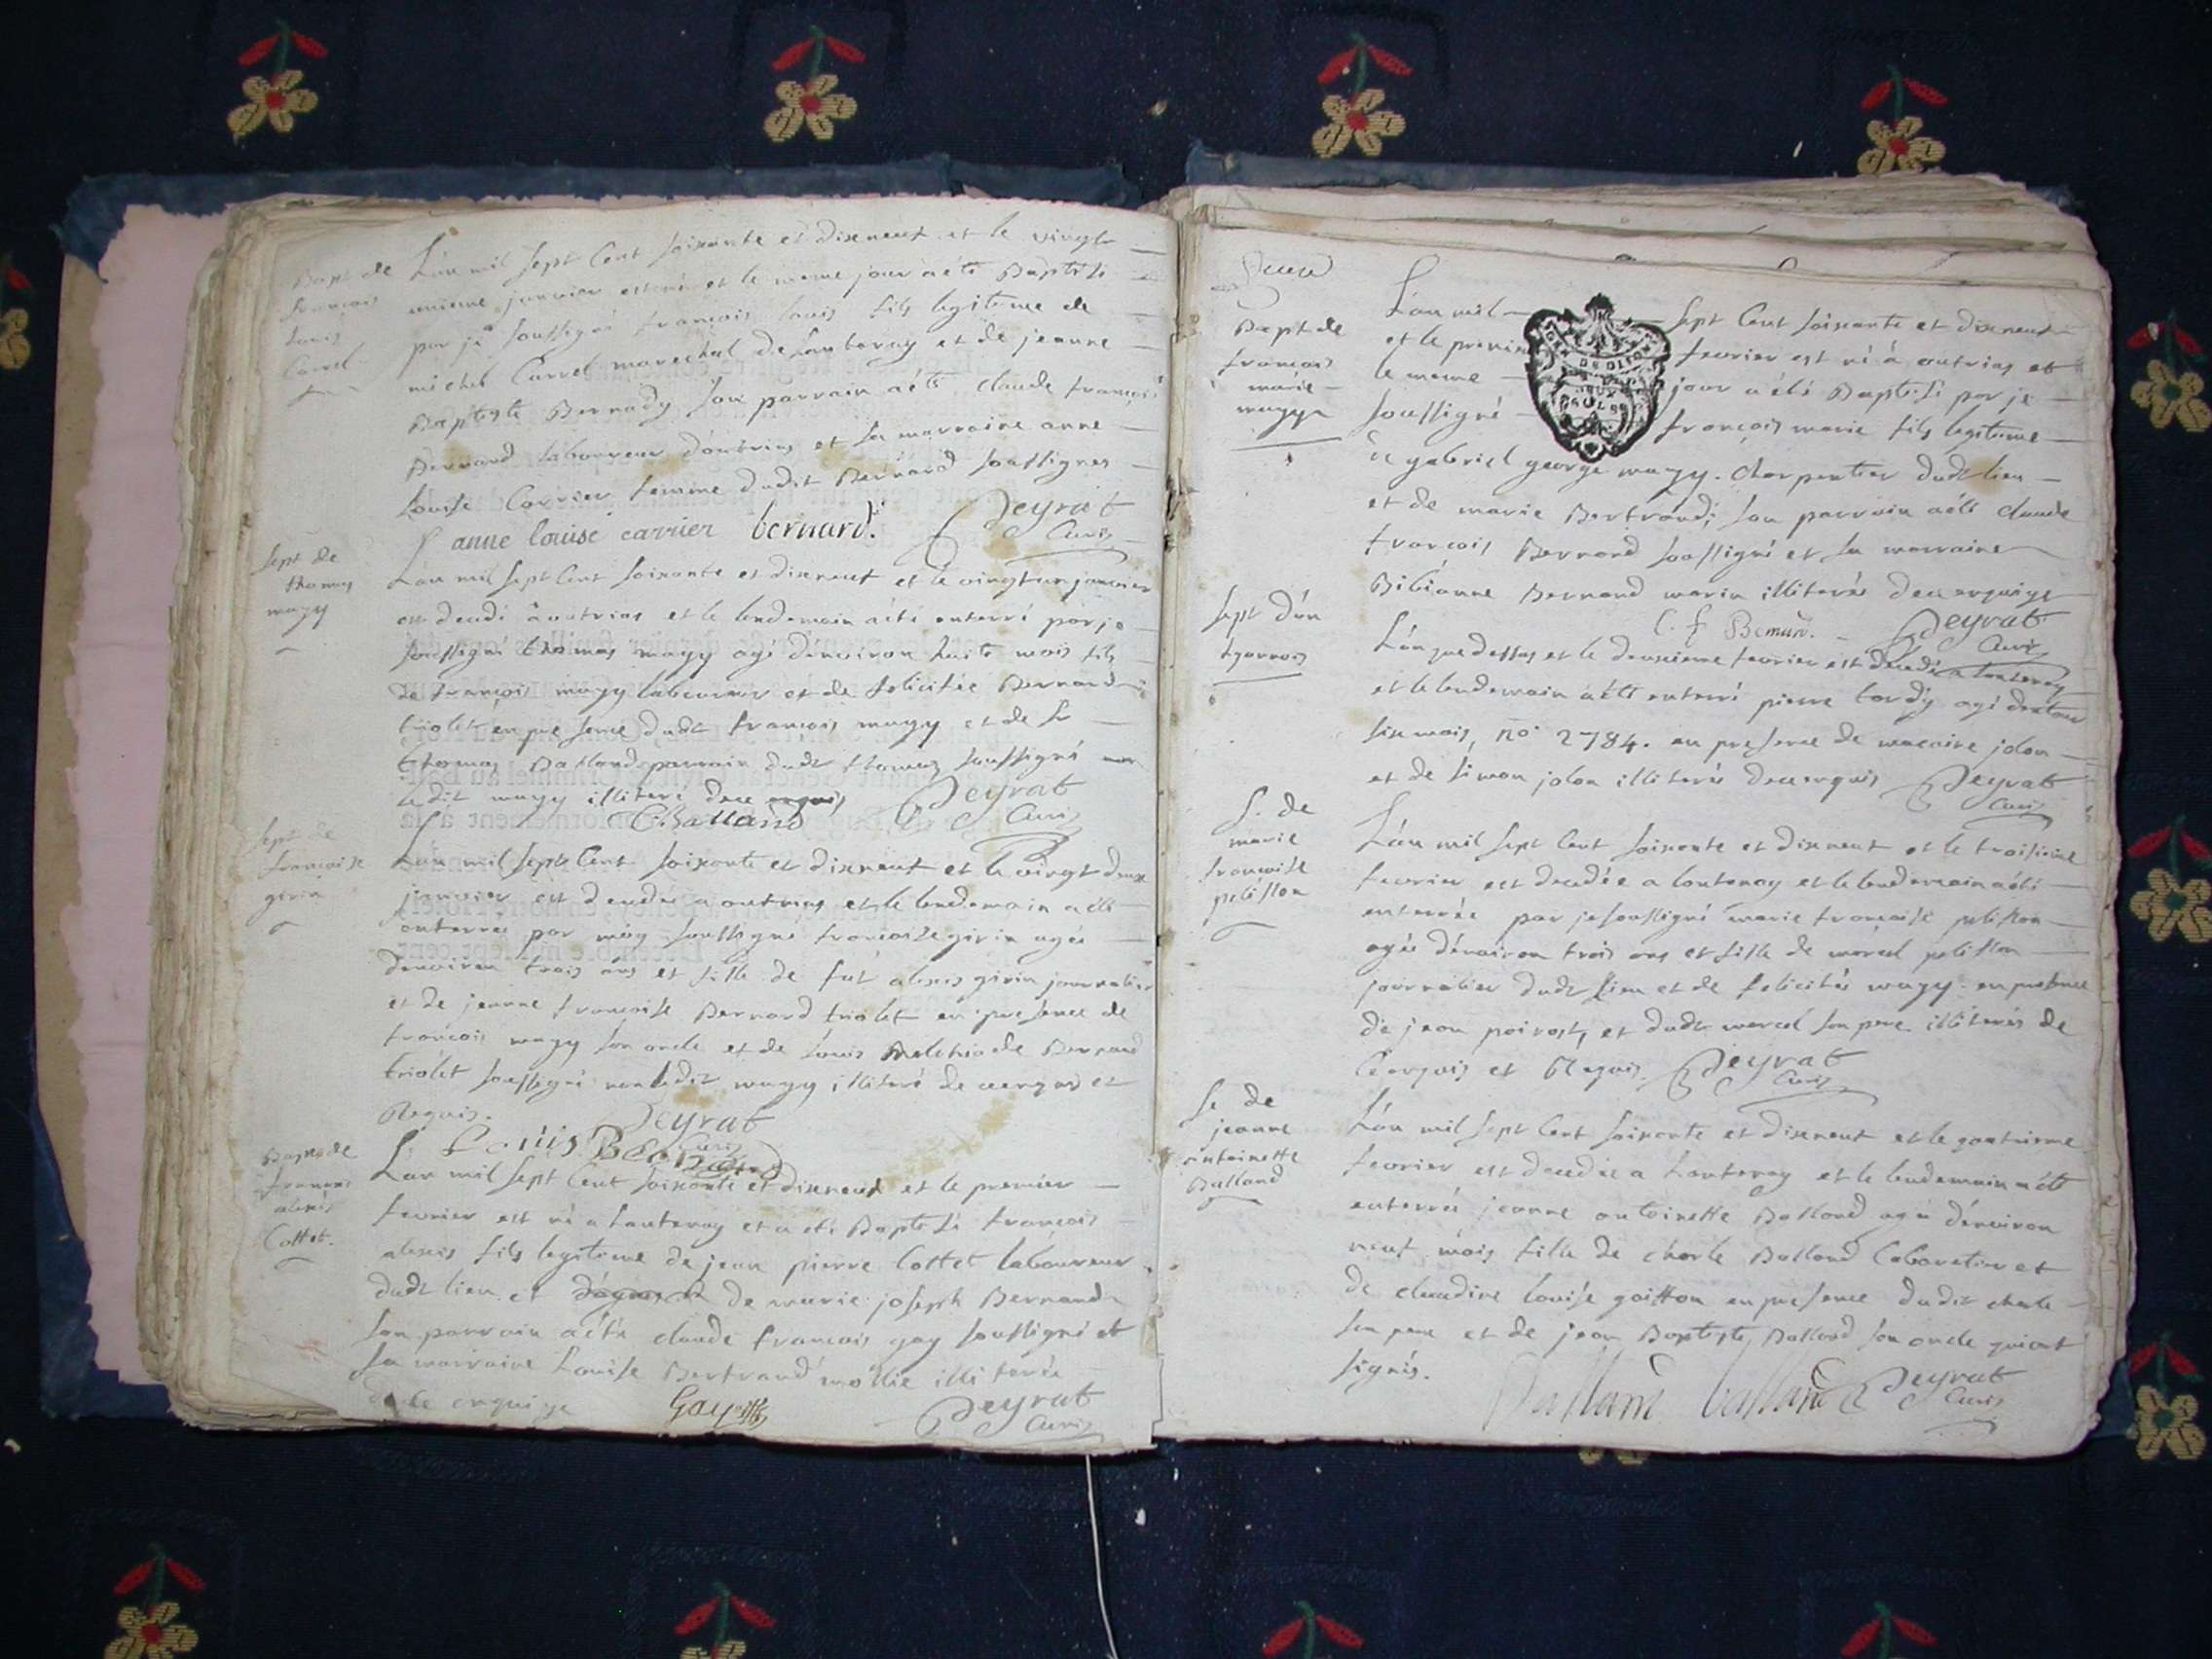 Bapt de
françois
louis
Carrel
L'an mil sept Cent soixante et disneuf et le vingt
unieme janvier est né et le meme jour a été Baptisé
par je soussigné françois louis fils legitime de
michel Carrel marechal de Lantenay et de jeanne
Baptiste Bernady son parrain a été claude françois
Bernard laboureur d'outrias et sa marraine anne
louise Carrier femme dudit Bernard soussignes
anne louise carrier bernard. Deyrat
Curé
Sept de
thomas
mugy
L'an mil sept Cent soixante et disneuf et le vingtun janvier
est decedé a outrias et le lendemain a été enterré par je
soussigné thomas mugy agé d'environ huits mois fils
de françois mugy laboureur et de felicitée Bernard
triolet en presence dudt françois mugy et de sr
thomas Balland parrain dudt thomas soussigné non
ledit mugy illiteré de ce enquis Deyrat
T. Balland Curé
Sept de
françoise
girin
L'an mil sept Cent soixante et disneuf et le vingt deux
janvier est decedée a outrias et le lendemain a été
enterrée par moy soussigné françoise girin agée
denviron trois ans et fille de fut alexis girin journalier
et de jeanne françoise Bernard triolet en présence de
françois mugy son oncle et de louis Melchiade Bernard
triolet soussigné non ledit mugy illiteré de ce enquis et
Requis. Deyrat
Louis Bernard Curé
Bapt de
françois
alexis
Cottet.
L'an mil sept Cent soixante et disneuf et le premier
fevrier est né a lantenay et a eté Baptisé françois
alexis fils legitime de jean pierre Cottet laboureur
dudt lieu et de marie joseph Bernard
son parrain a été claude françois gay soussigné et
sa marraine Louise Bertrand mollie illiterée
de ce enquise Gay Deyrat
Curé
Bapt de
françois
marie
mugy
L'an mil sept Cent soixante et disneuf
et le premier fevrier est né à outrias et
le meme jour a été Baptisé par je
soussigné françois marie fils legitime
de gabriel george mugy. charpentier dudt lieu
et de marie Bertrand; son parrain a été claude
françois Bernard soussigné et sa marraine
Bibianne Bernard marin illiterée de ce enquise
C. f Bernard. Deyrat
Curé
Sept d'un
L'an que dessus et le deuxieme fevrier est decedé a lantenay
et le lendemain a été enterré pierre tardy agé d'entour
six mois, no 2784. en presence de macaire jolon
et de simon jolon illiterés de ce enquis Deyrat
Curé
S. de
marie
françoise
pelisson
L'an mil sept Cent soixante et disneuf et le troisieme
fevrier est decedée a lantenay et le lendemain a été
enterrée par je soussigné marie françoise pelisson
agée d'environ trois ans et fille de marcel pelisson
journalier dudt lieu et de felicité mugy en presence
de jean et dudt marcel son pere illiterés de
Ce enquis et Requis Deyrat
Curé
Se de
jeanne
antoinette
Balland
L'an mil sept Cent soixante et disneuf et le quatrieme
fevrier est decedée a lantenay et le lendemain a été
enterrée jeanne antoinette Balland agée d'environ
neuf mois fille de charle Balland Cabaretier et
de claudine louise goitton en presence dudit charle
son pere et de jean Baptiste Balland son oncle qui ont
signés.
Balland balland Deyrat
Curé